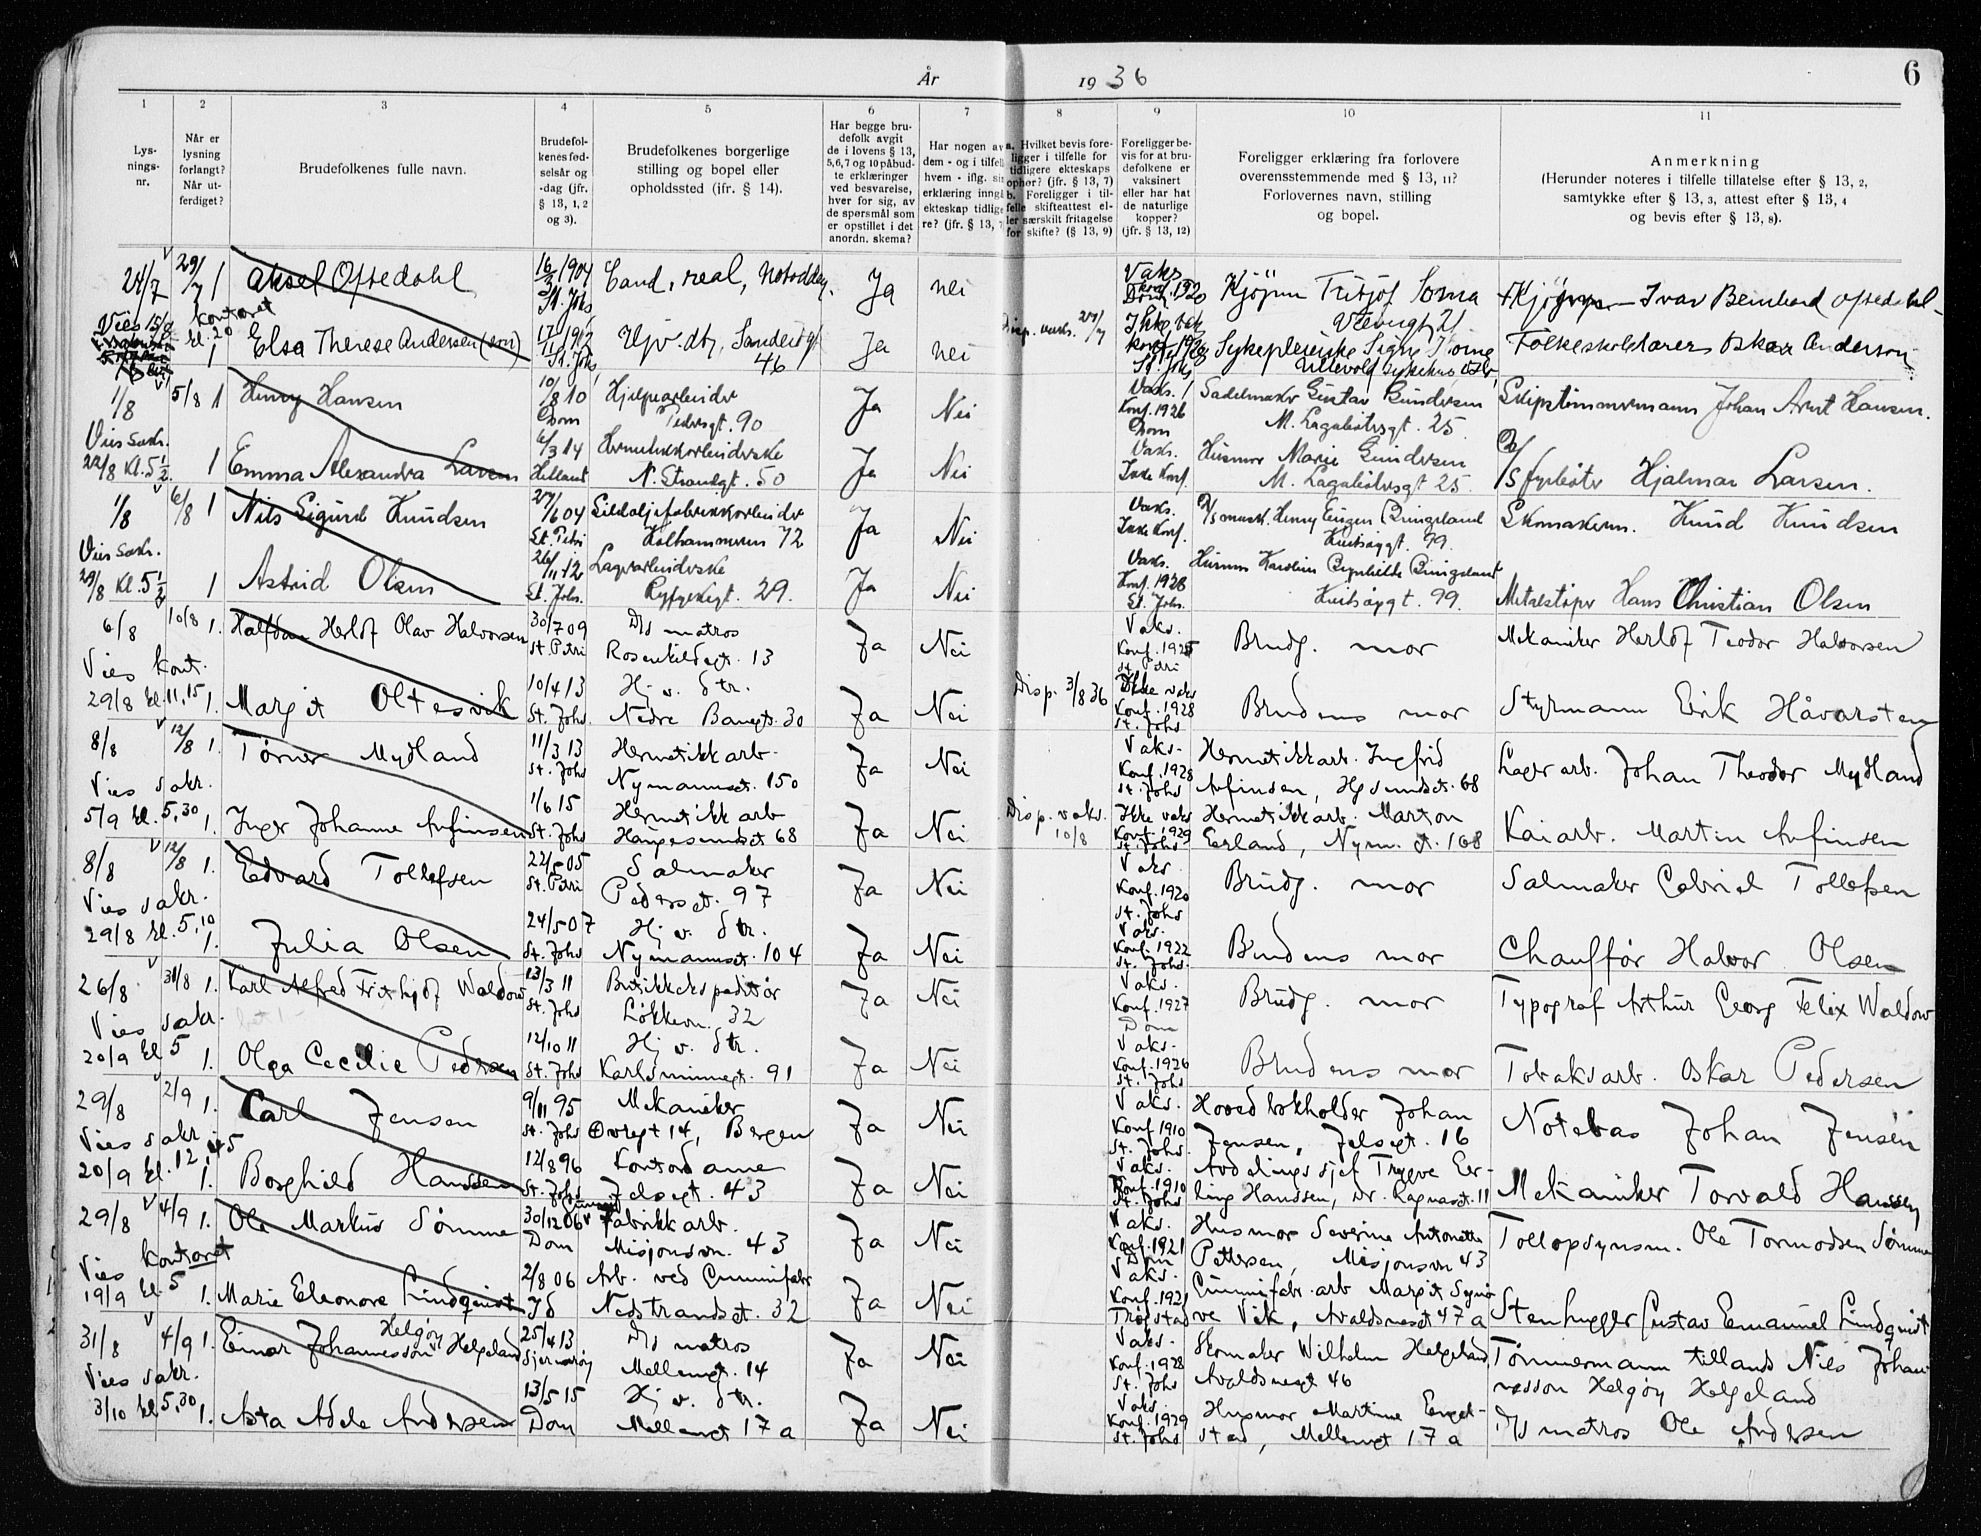 År 1936
6
1 2 3 4 5 6 7 8 9 10 11
Lys-
nings-
nr.
Når er
lysning
forlangt?
Når ut-
ferdiget?
Brudefolkenes fulle navn.
Brudefol-
kenes fød-
selsår og
-dag (jfr.
§ 13, 1, 2
og 3).
Brudefolkenes borgerlige
stilling og bopel eller
opholdssted (ifr. § 14).
Har begge bru-
defolk avgit
de i lovens § 13,
5,6,7 og 10 påbud-
te erklæringer
ved besvarelse,
hver for sig, av
de spørsmål som
er opstillet i det
anordn. skema?
Har nogen av
dem - og i tilfell
hvem - iflg. sin
erklæring inngå
ekteskap tidlige
re? (jfr. § 13, 7
a. Hvilket bevis fore-
ligger i tilfelle for
tidligere ekteskaps
ophør? (jfr. § 13, 7)
b. Foreligger i til-
felle skifteattest el-
ler særskilt fritagelse
for skifte? (§ 13, 9)
Foreligger be-
vis for at bru-
defolkene er
vaksinert
eller har hat
de naturlige
kopper?
(jfr. § 13, 12)
Foreligger erklæring fra forlovere
overensstemmende med § 13, 11?
Forlovernes navn, stilling
og bopel.
Anmerkning
(Herunder noteres i tilfelle tillatelse efter § 13, 2,
samtykke efter § 13, 3, attest efter § 13, 4
og bevis efter § 13, 8).
24/7 29/7 1 Aksel Oftedahl 16/3 1904 St. Johs Cand. real, Notodden. Ja nei Vaks konf. 1920 Kjøpm Fritjof Soma Ivar Bernhard Oftedahl
Vies 15/8 kontoret kl. 20
1 Else Therese Andersen (son) 17/11 1912 St. Johs Hjv. dtr, Sandeidgt 46 Ja nei Disp. vaks. Ikke vak Sykepleierske Signe Ullevold sykehus Oslo, Folkeskolelærer Oskar Anderson
1/8 5/8 1 Henry Hansen 10/8 10 Dom Hjelpearbeider Pedersgt. 90 Ja Nei Vaks. Konf. 1926 Dom Sadelmaker Gustav Gundersen M. Lagabøtersgt. 25 Skipstømmermann Johan Arnt Hansen.
Vies Sakr.
22/8 Kl. 5 1/2 1 Emma Alexandra Larsen 6/3 14 Hetland Hermetikkarbeiderske N. Strandgt. 50 Ja Nei Vaks. Ikke Konf. Husmor Marie Gundersen M. Lagabøtersgt 25. D/S fyrbøter Hjalmar Larsen.
1/8 6/8 1 Nils Sigurd Knudsen 27/6 04 St. Petri Sildoljefabrikkarbeider Kolhammeren 72 Ja Nei Vaks. Ikke Konf. D/S mask. Henry Eugen Bringeland Hvitsøygt. 99. Skomakerm. Knud Knudsen
Vies Sakr.
29/8 Kl. 5 1/2 1 Astrid Olsen 26/11 12 St. Johs. Lagerarbeiderske Ryfylkegt. 29. Ja Nei Vaks. Konf. 1928 St. Johs. Husmor Karoline Brynhilde Bringeland Hvitsøygt. 99. Metalstøper Hans Christian Olsen
6/8 10/8 1. Halfdan Herlof Olav Halvorsen 30/7 09 St. Petri D/S matros Rosenkildegt. 13 Ja Nei Vaks. Konf. 1925 St. Petri Brudg. mor Mekaniker Herlof Teodor Halvorsen
Vies kont.
29/8 kl. 11,15 1. Margit Oltesvik 10/4 13 St. Johs. Hj v. dtr. Nedre Banegt. 30 Ja Nei Disp. 3/8 36 Ikke vaks Konf. 1928 St. Johs Brudens mor Styrmann Eirik Håvarstein
8/8 12/8 1. Tørner Mydland 11/3 13 St. Johs Hermetikkarb. Nymannsgt. 150 Ja Nei Vaks. Konf. 1928 St. Johs Hermetikkarb. Ingfrid Arfinsen, Hgsundgt. 68 Lagerarb. Johan Theodor Mydland
Vies sakr.
5/9 kl. 5,30 1. Inger Johanne Arfinsen 1/6 15 St. Johs Hermetikkarb Haugesundsgt 68 Ja Nei Disp. vaks. 10/8 Ikke vaks Konf. 1929 St. Johs Hermetikkarb. Marton Erland, Nym. gt. 168 Kaiarb. Martin Arfinsen
8/8 12/8 1. Edvard Tollefsen 22/5 05 St. Petri Salmaker Pedersgt. 97 Ja Nei Vaks Konf. 1920 St. Johs Brudg. mor Salmaker Gabriel Tollefsen
Vies sakr.
29/8 kl. 5,10 1. Julia Olsen 24/5 07 St. Johs Hj v. dtr. Nymannsgt. 104 Ja Nei Vaks. Konf. 1922 St. Johs. Brudens mor Chauffør Halvor Olsen
26/8 31/8 1. Karl Alfred Frithjof Waldow 13/3 11 St. Johs Butikkekspeditør Løkkevn. 32 Ja Nei Vaks. Konf. 1927 Dom Brudg. mor Typograf Arthur Georg Felix Waldow
Vies sakr.
20/9 kl 5 1. Olga Cecilie Pedersen 12/10 11 St. Johs Hj v. dtr. Karlsminnegt. 91 Ja Nei Vaks. Konf. 1926 St. Johs Brudens mor Tobaksarb. Oskar Pedersen
29/8 2/9 1. Carl Jensen 9/11 95 St. Johs Mekaniker Øvregt 14, Bergen Ja Nei Vaks. Konf. 1910 St. Johs. Hovedbokholder Johan Jensen, Jelsegt. 16 Notebas Johan Jensen
Vies sakr.
20/9 kl. 12,45 1. Borghild Hanssen 12/8 96 St. Johs Kontordame Jelsegt. 43 Ja Nei Vaks. Konf. 1910 St. Johs Avdelingssjef Trygve Erling Hanssen, Dr. Ragnasgt. 11 Mekaniker Torvald Hanssen
29/8 4/9 1. Ole Markus Sømme 30/12 06 Dom Gummifabrikkarb. Misjonsvn. 43 Ja Nei Vaks. Konf. 1921 Dom Husmor Severine Antonette Pettersen, Misjonsvn 43 Tollopsynsm. Ole Tormodsen Sømme
Vies kontoret
19/9 kl. 5 1. Marie Eleonore Lindqvist 2/8 06 Arb. ved Gummifabr Nedstrandsgt. 32 Ja Nei Vaks. Konf. 1921 Trøgstad Gummifabr. arb Margit Synnøve Vik, Avaldsnesgt 47 a Stenhugger Gustav Emanuel Lindqvist
31/8 4/9 1. Einar Johannesson Helgøy Helgeland 25/4 13 Sjernarøy D/S matros Mellemgt. 14 Ja Nei Vaks. Konf. 1928 St. Johs Skomaker Wilhelm Helgeland Avaldsnesgt 46 Tømmermann tillands Nils Johannesson Helgøy Helgeland
Vies sakr.
3/10 kl 5,30 1. Asta Adele Andersen 13/5 15 Dom Hj v. dtr. Mellemgt 17 a Ja Nei Vaks. Konf. 1929 St. Johs Husmor Martine Engelstad, Mellemgt 17 a D/S matros Ole Andersen